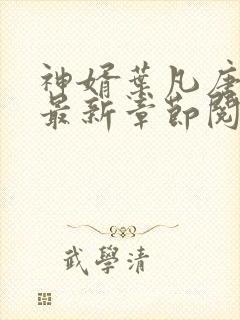 神婿葉凡唐
最新章節閱
武學清